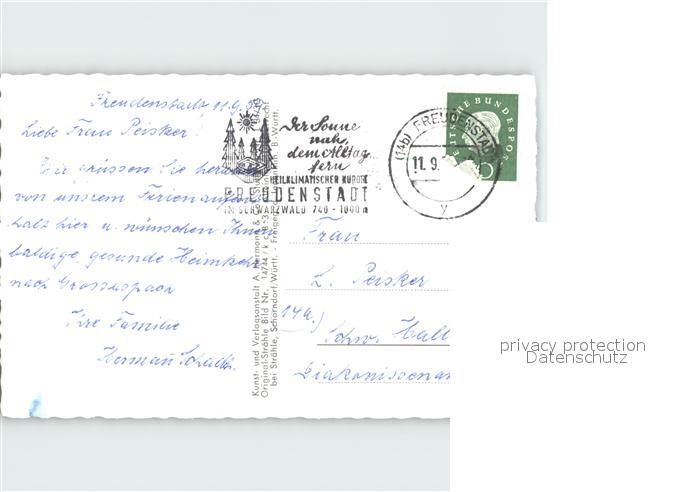 Freudenstadt 11.9.59
Liebe Frau Peisker!
Wir grüssen Sie herzlich
von unserem Ferienaufent-
halt hier u. wünschen Ihnen
baldige, gesunde Heimkehr
nach Grossaspach
Ihre Familie
Hermann
Der Sonne
nah,
dem Alltag
fern
HEILKLIMATISCHER KURORT
FREUDENSTADT
IM SCHWARZWALD 740 - 1000 m
(14b) FREUDENSTADT
11.9.
y
DEUTSCHE BUNDESPOST
Kunst- und Verlagsanstalt A.
Original-Strähle Bild Nr.
bei Strähle, Schorndorf/Württ.
Frau
L. Peisker
(14a.)
Schw. Hall
Diakonissenan
privacy protection
Datenschutz